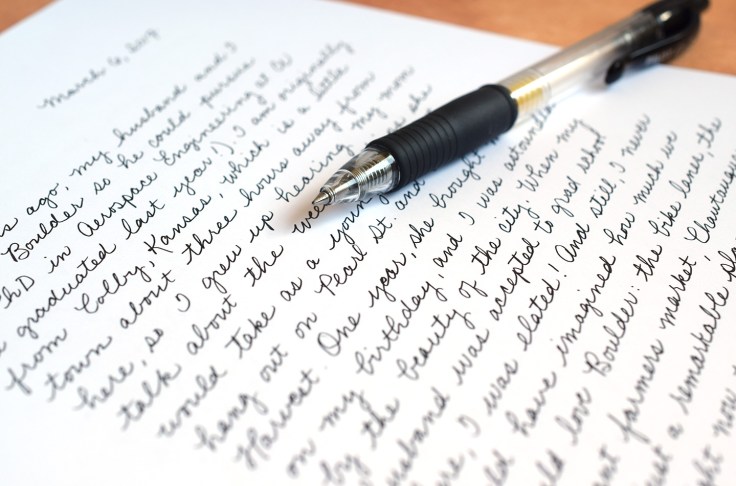 March 9,
ago, my husband and I
Boulder so he could pursue
PhD in Aerospace Engineering at CU
graduated last year!). I am originally
from Colby, Kansas, which is a little
town about three hours away from
here, so I grew up hearing my mom
talk about the as
would take as a young and
hang out on Pearl St. and
Harvest. One year, she brought
on my birthday and I was astounded
by the beauty of the city. When my
husband was accepted to grad school
here, I was elated! And still, I never
have imagined how much we
love Boulder: the bike lanes, the
farmers market, Chautauqua
just a remarkable
right now